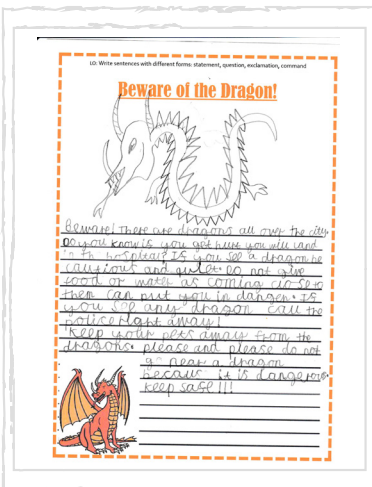 LO: Write sentences with different forms: statement, question, exclamation, command
Beware of the Dragon!
Beware! There are dragons all over the city.
Do you know is you got hurt you will land
in th hospital? If you see a dragon be
cautious and quiet. Do not give
food or water as coming close to
them can put you in danger. If
you see any dragon call the
police right away!
Keep your pets away from the
dragons. please and please do not
go near a dragon
becaus it is dangerous.
Keep safe!!!